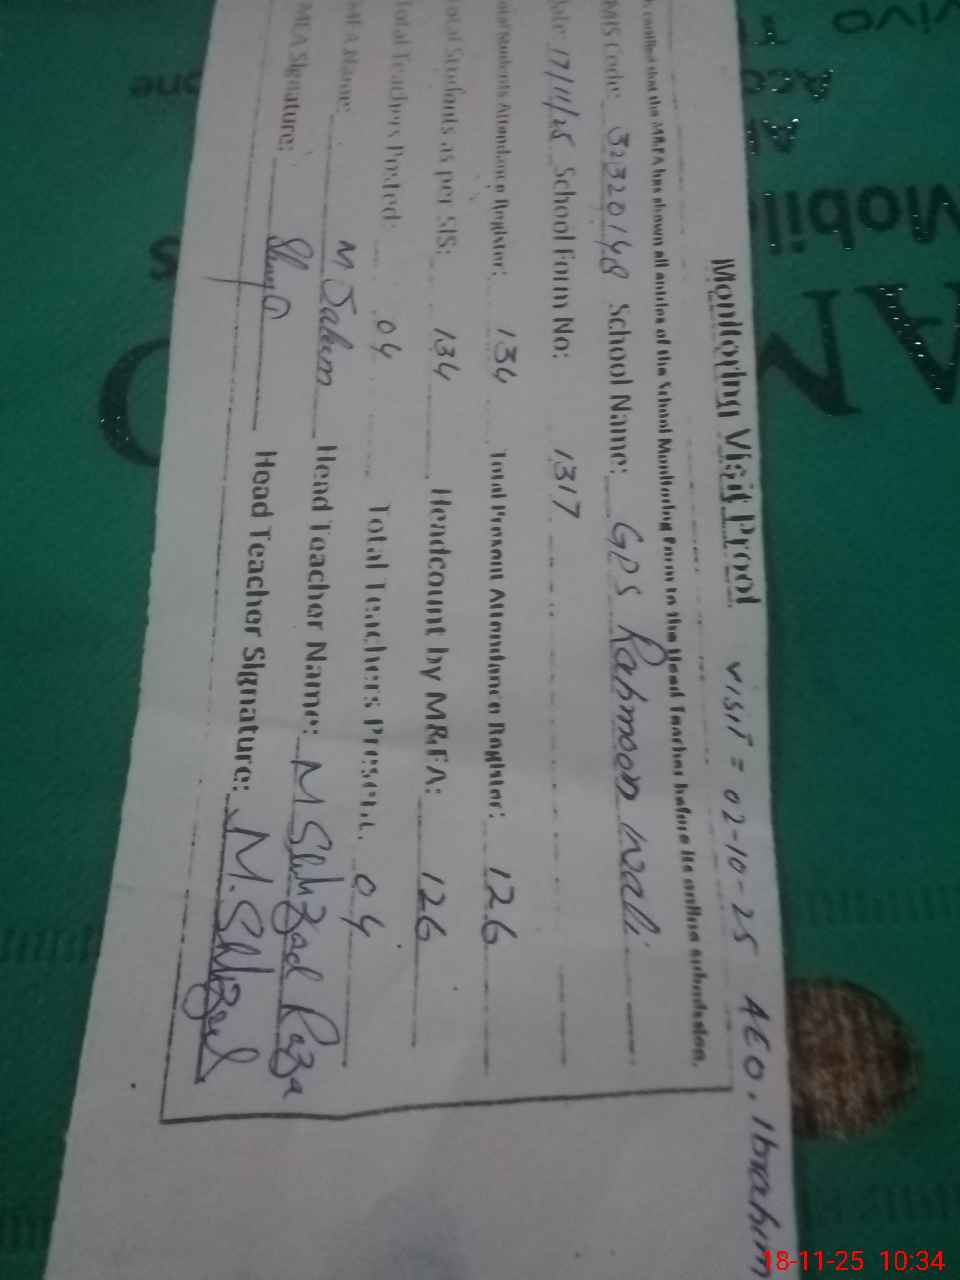 Monitoring Visit Proof visit = 02-10-25 AEO. Ibrahim
certified that the M&FA has shown all entries of the School Monitoring Form to the Head Teacher before its online submission.
EMIS Code: 32320148 School Name: GPS Rahmoon wali
Date: 17/11/25 School Form No: 1317
Total Students Attendance Register: 134 Total Present Attendance Register: 126
Total Students as per SIS: 134 Headcount by M&FA: 126
Total Teachers Posted: 04 Total Teachers Present: 04
MEA Name: M Saleem Head Teacher Name: M Shahzad Raza
MEA Signature: Head Teacher Signature: M. Shahzad
vivo
Mobile
18-11-25 10:34